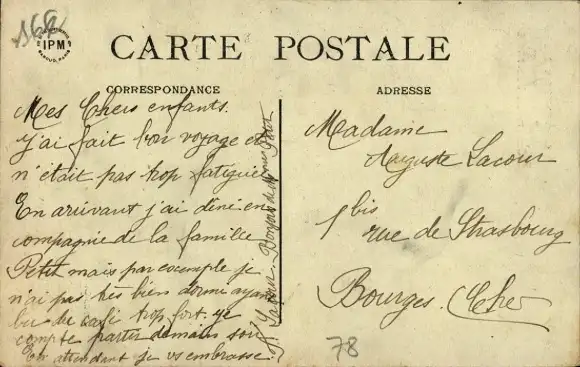 168
IPM
CARTE POSTALE
CORRESPONDANCE
ADRESSE
Mes Chers enfants.
j'ai fait bon voyage et
n'était pas trop fatiguée
En arrivant j'ai diné en
compagnie de la famille
Petit mais par exemple je
n'ai pas très bien dormi ayant
bu du café trop fort. je
compte partir demain soir
En attendant je vs embrasse
Lacour. Bonjour de
Madame
Auguste Lacour
1 bis
rue de Strasbourg
Bourges. Cher
78